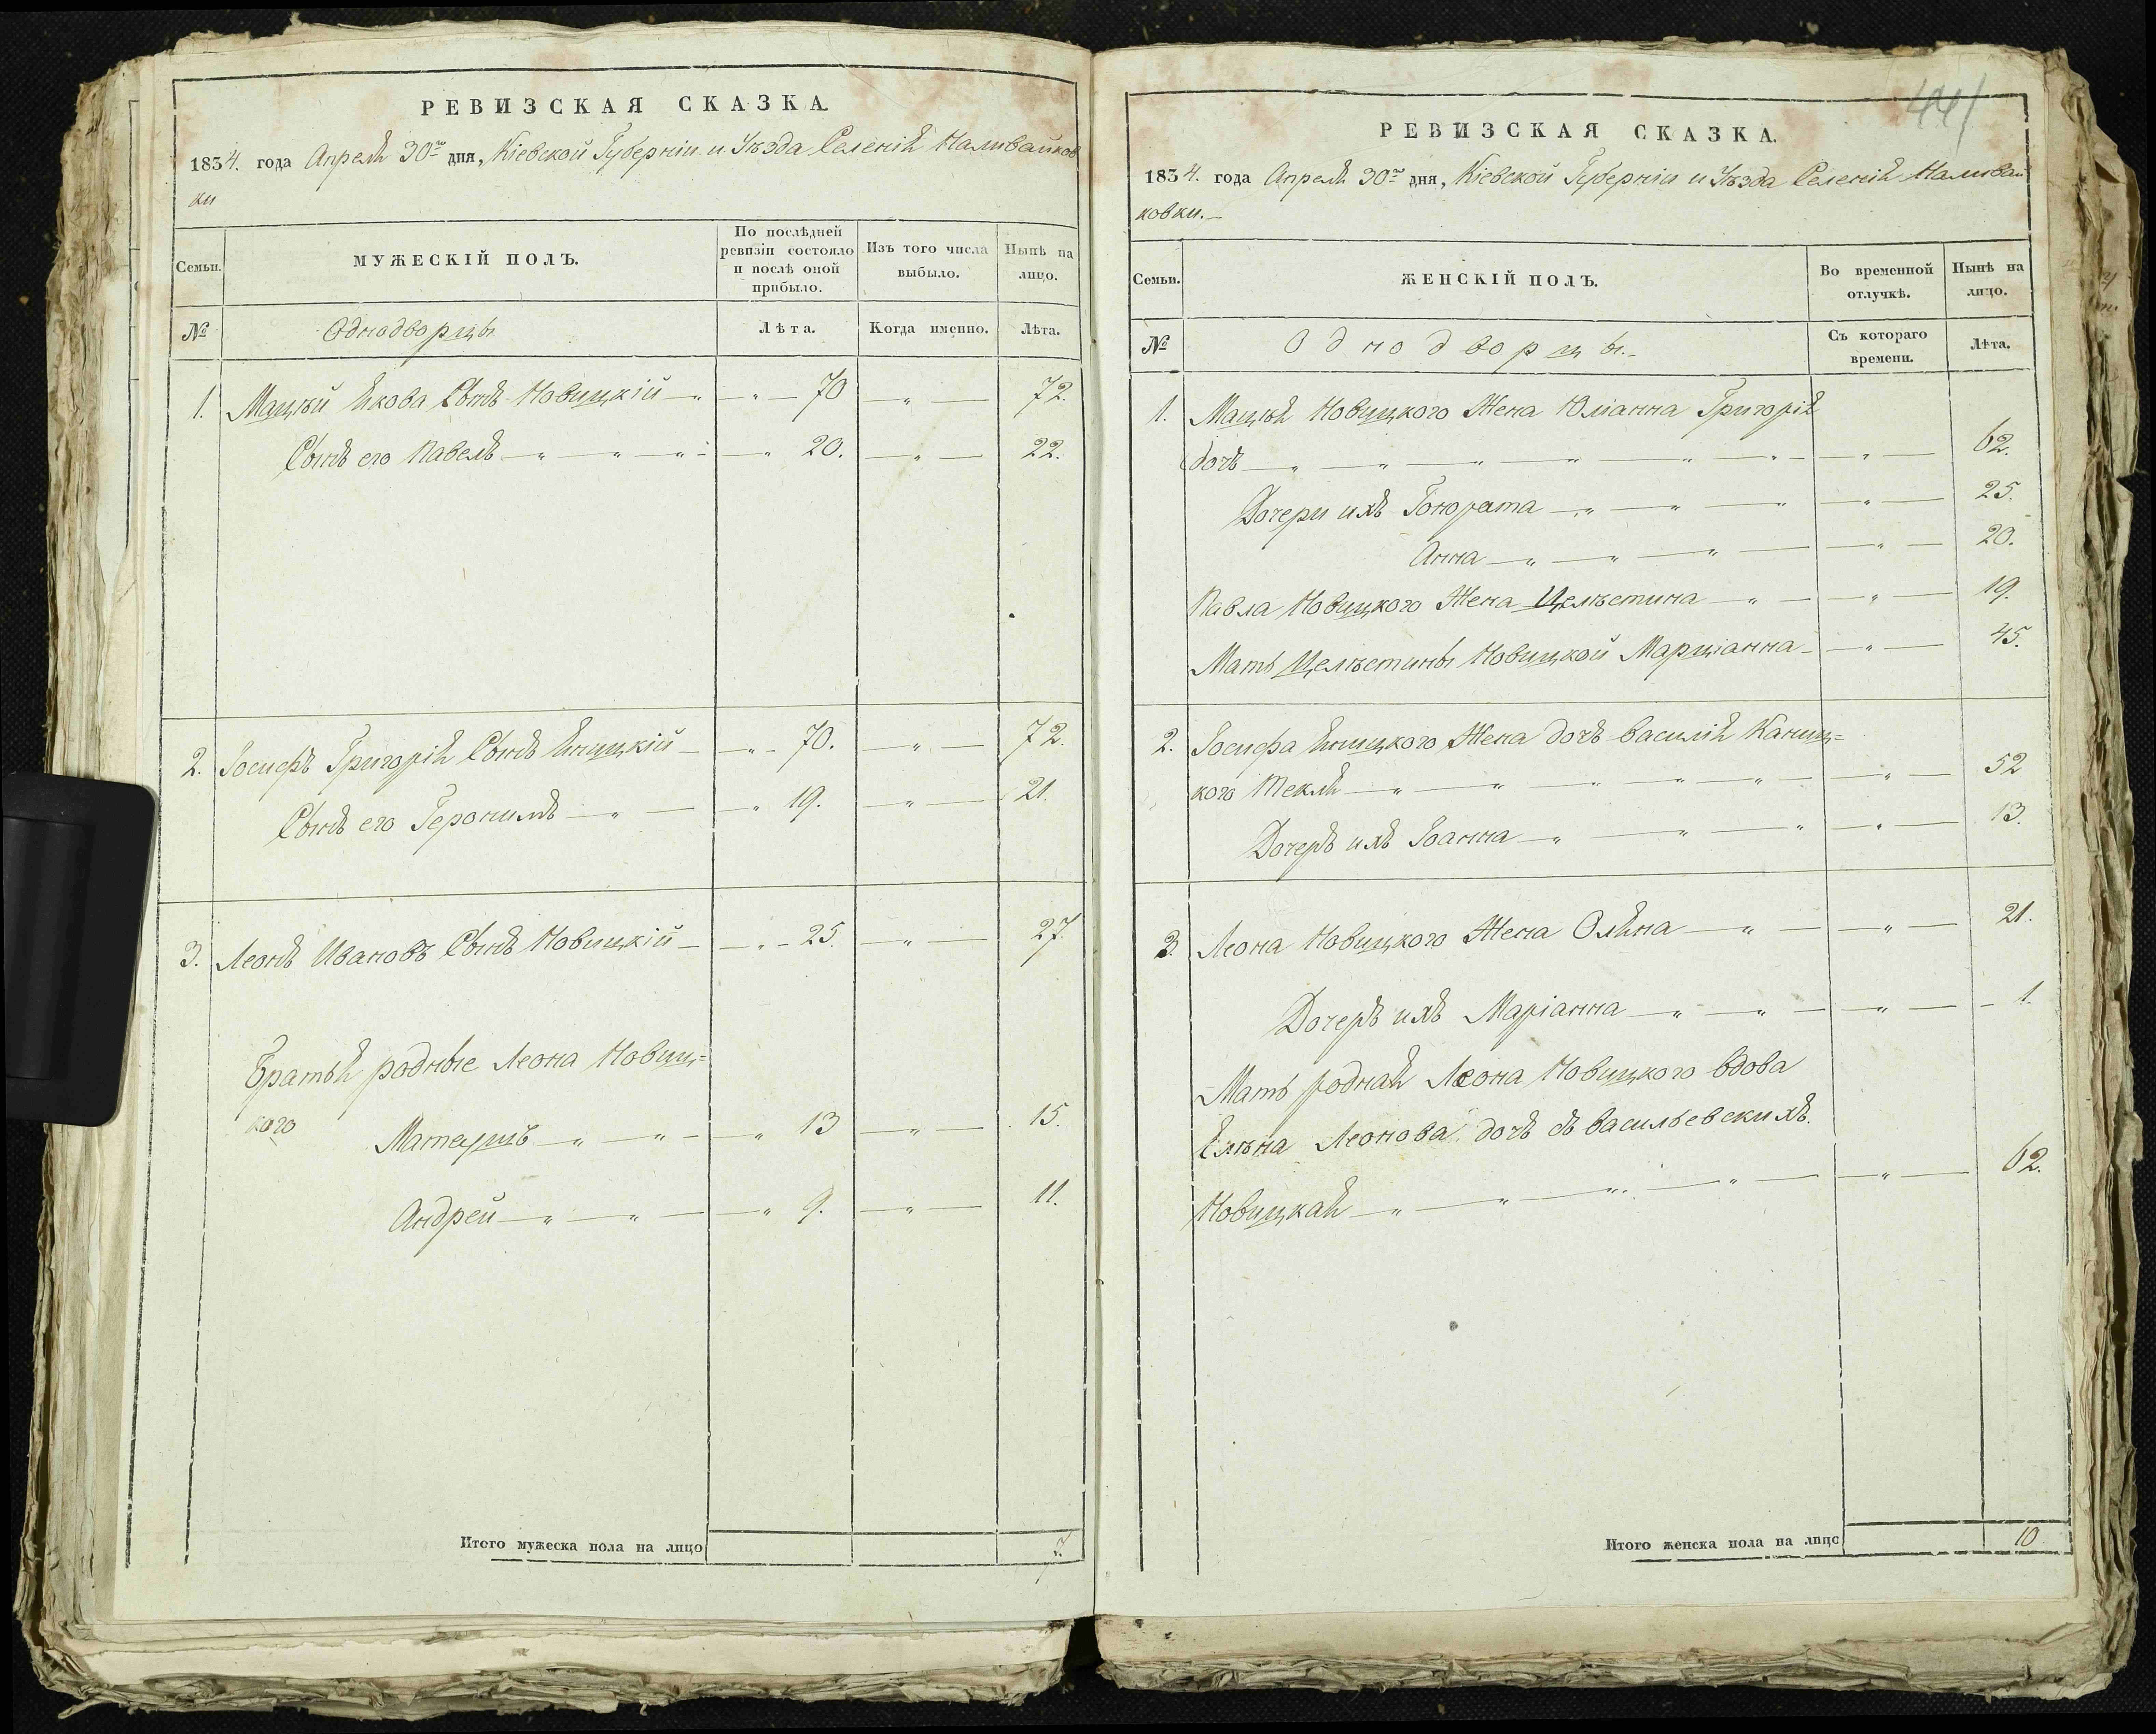 РЕВИЗСКАЯ СКАЗКА
1834. года Апреля 30го дня, Кіевской Губерніи и Уѣзда Селенія Наливайков
ки
Семьи.
МУЖЕСКІЙ ПОЛЪ.
По послѣдней ревизіи состояло и послѣ оной прибыло.
Изъ того числа выбыло.
Нынѣ на лицо.
№
Однодворцы
Лѣта.
Когда именно.
Лѣта.
1. Мацѣй Якова Сынъ Новицкій 70 72.
Сынъ его Павелъ 20. 22.
2. Іосифъ Григорія Сынъ Яницкій 70. 72.
Сынъ его Геронимъ 19. 21.
3. Леонъ Ивановъ Сынъ Новицкій 25. 27.
Братья родные Леона Новиц=
кого
Матеушъ 13 15.
Андрей 9. 11.
Итого мужеска пола на лицо 7
441
РЕВИЗСКАЯ СКАЗКА.
1834. года Апреля 30го дня, Кіевской Губерніи и Уѣзда Селенія Наливай
ковки.
Семьи.
ЖЕНСКІЙ ПОЛЪ.
Во временной отлучкѣ.
Нынѣ на лицо.
№
Однодворцы.
Съ котораго времени.
Лѣта.
1. Мацѣя Новицкого Жена Юліанна Григорія
дочь 62.
Дочери ихъ Гонората 25.
Анна 20.
Павла Новицкого Жена Целѣстина 19.
Мать Целѣстины Новицкой Марціанна 45.
2. Іосифа Яницкого Жена дочь Василія Каниц=
кого Текля 52
Дочеръ ихъ Іоанна 13.
3. Леона Новицкого Жена Оляна 21.
Дочеръ ихъ Маріанна 1.
Мать родная Леона Новицкого вдова
Елѣна Леонова дочь съ Васильевскихъ.
Новицкая 62.
Итого женска пола на лицо 10